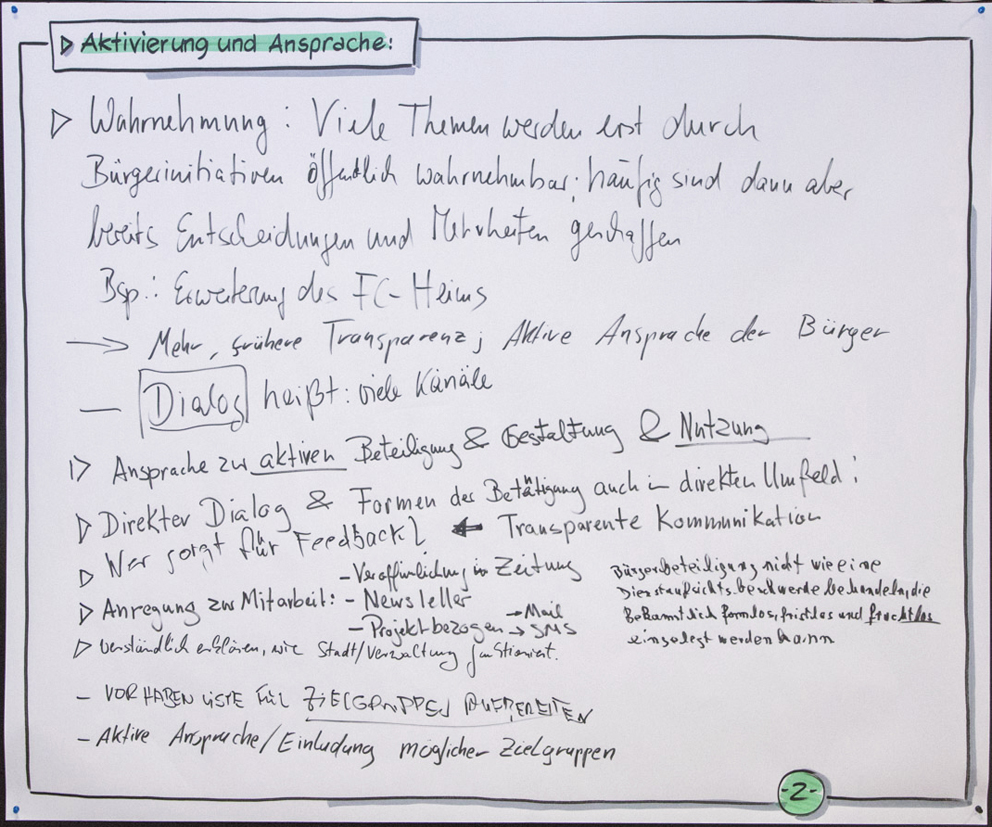 ▷ Aktivierung und Ansprache:
▷ Wahrnehmung: Viele Themen werden erst durch
Bürgerinitiativen öffentlich wahrnehmbar; häufig sind dann aber
bereits Entscheidungen und Mehrheiten geschaffen
Bsp.: Erweiterung des FC-Heims
→ Mehr, frühere Transparenz; Aktive Ansprache der Bürger
— Dialog heißt: viele Kanäle
▷ Ansprache zur aktiven Beteiligung & Gestaltung & Nutzung
▷ Direkter Dialog & Formen der Betätigung auch in direkten Umfeld!
▷ Wer sorgt für Feedback? ← Transparente Kommunikation
▷ Anregung zur Mitarbeit:
- Veröffentlichung in Zeitung
- Newsletter
- Projektbezogen → Mail
→ SMS
Bürgerbeteiligung nicht wie eine
Dienstaufsichtsbeschwerde behandeln, die
bekanntlich formlos, fristlos und fruchtlos
eingelegt werden kann
▷ Verständlich erklären, wie Stadt/Verwaltung funktioniert.
- VORHABENLISTE FÜR ZIELGRUPPEN AUFBEREITEN
- Aktive Ansprache/Einladung möglicher Zielgruppen
-2-